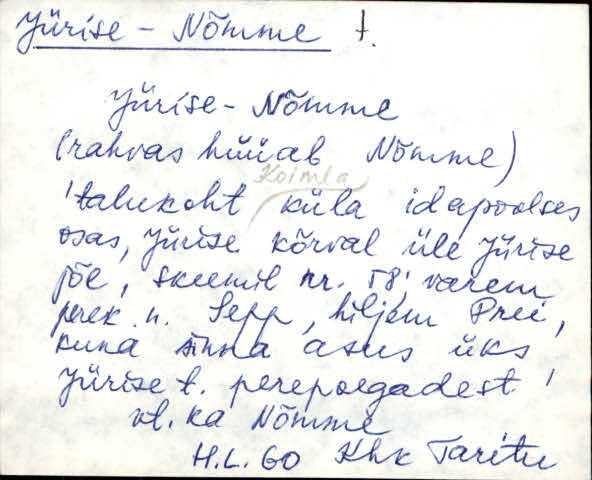 Jürise - Nõmme t.
Jürise - Nõmme
(rahvas hüüab Nõmme)
Koimla
'talukoht küla idapoolses
osas, Jürise kõrval üle Jürise
jõe, skeemil nr. 58; varem
perek. n. Sepp, hiljem Prei,
kuna sinna asus üks
Jürise t. perepoegadest'
vt. ka Nõmme
H.L. 60 Khk Taritu